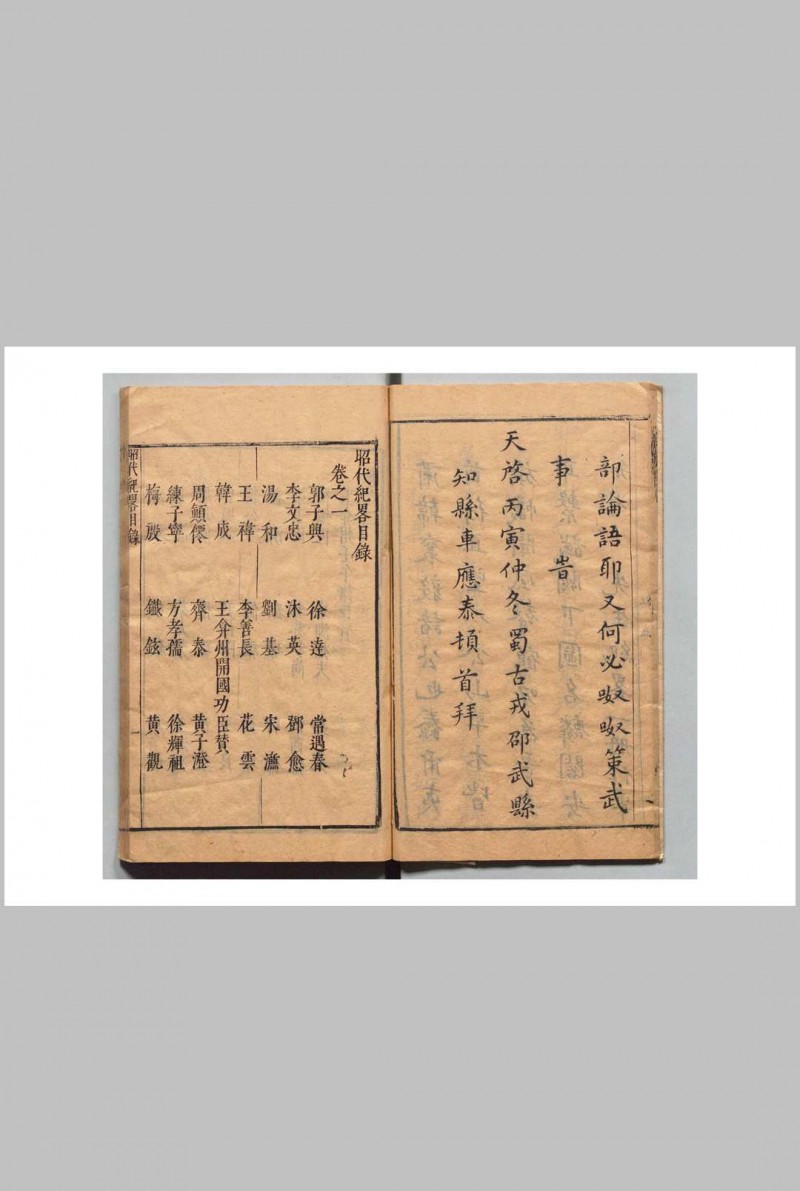 部論語耶又何必呶呶策武
事旹
天啓丙寅仲冬蜀古戎邵武縣
知縣車應泰頓首拜
昭代紀畧目錄
卷之一
郭子興 徐達 常遇春
李文忠 沐英 鄧愈
湯和 劉基 宋濂
王禕 李善長 花雲
韓成 王弇州開國功臣贊
周顛僊 齊泰 黃子澄
練子寧 方孝孺 徐輝祖
梅殷 鐵鉉 黃觀
昭代紀畧目錄